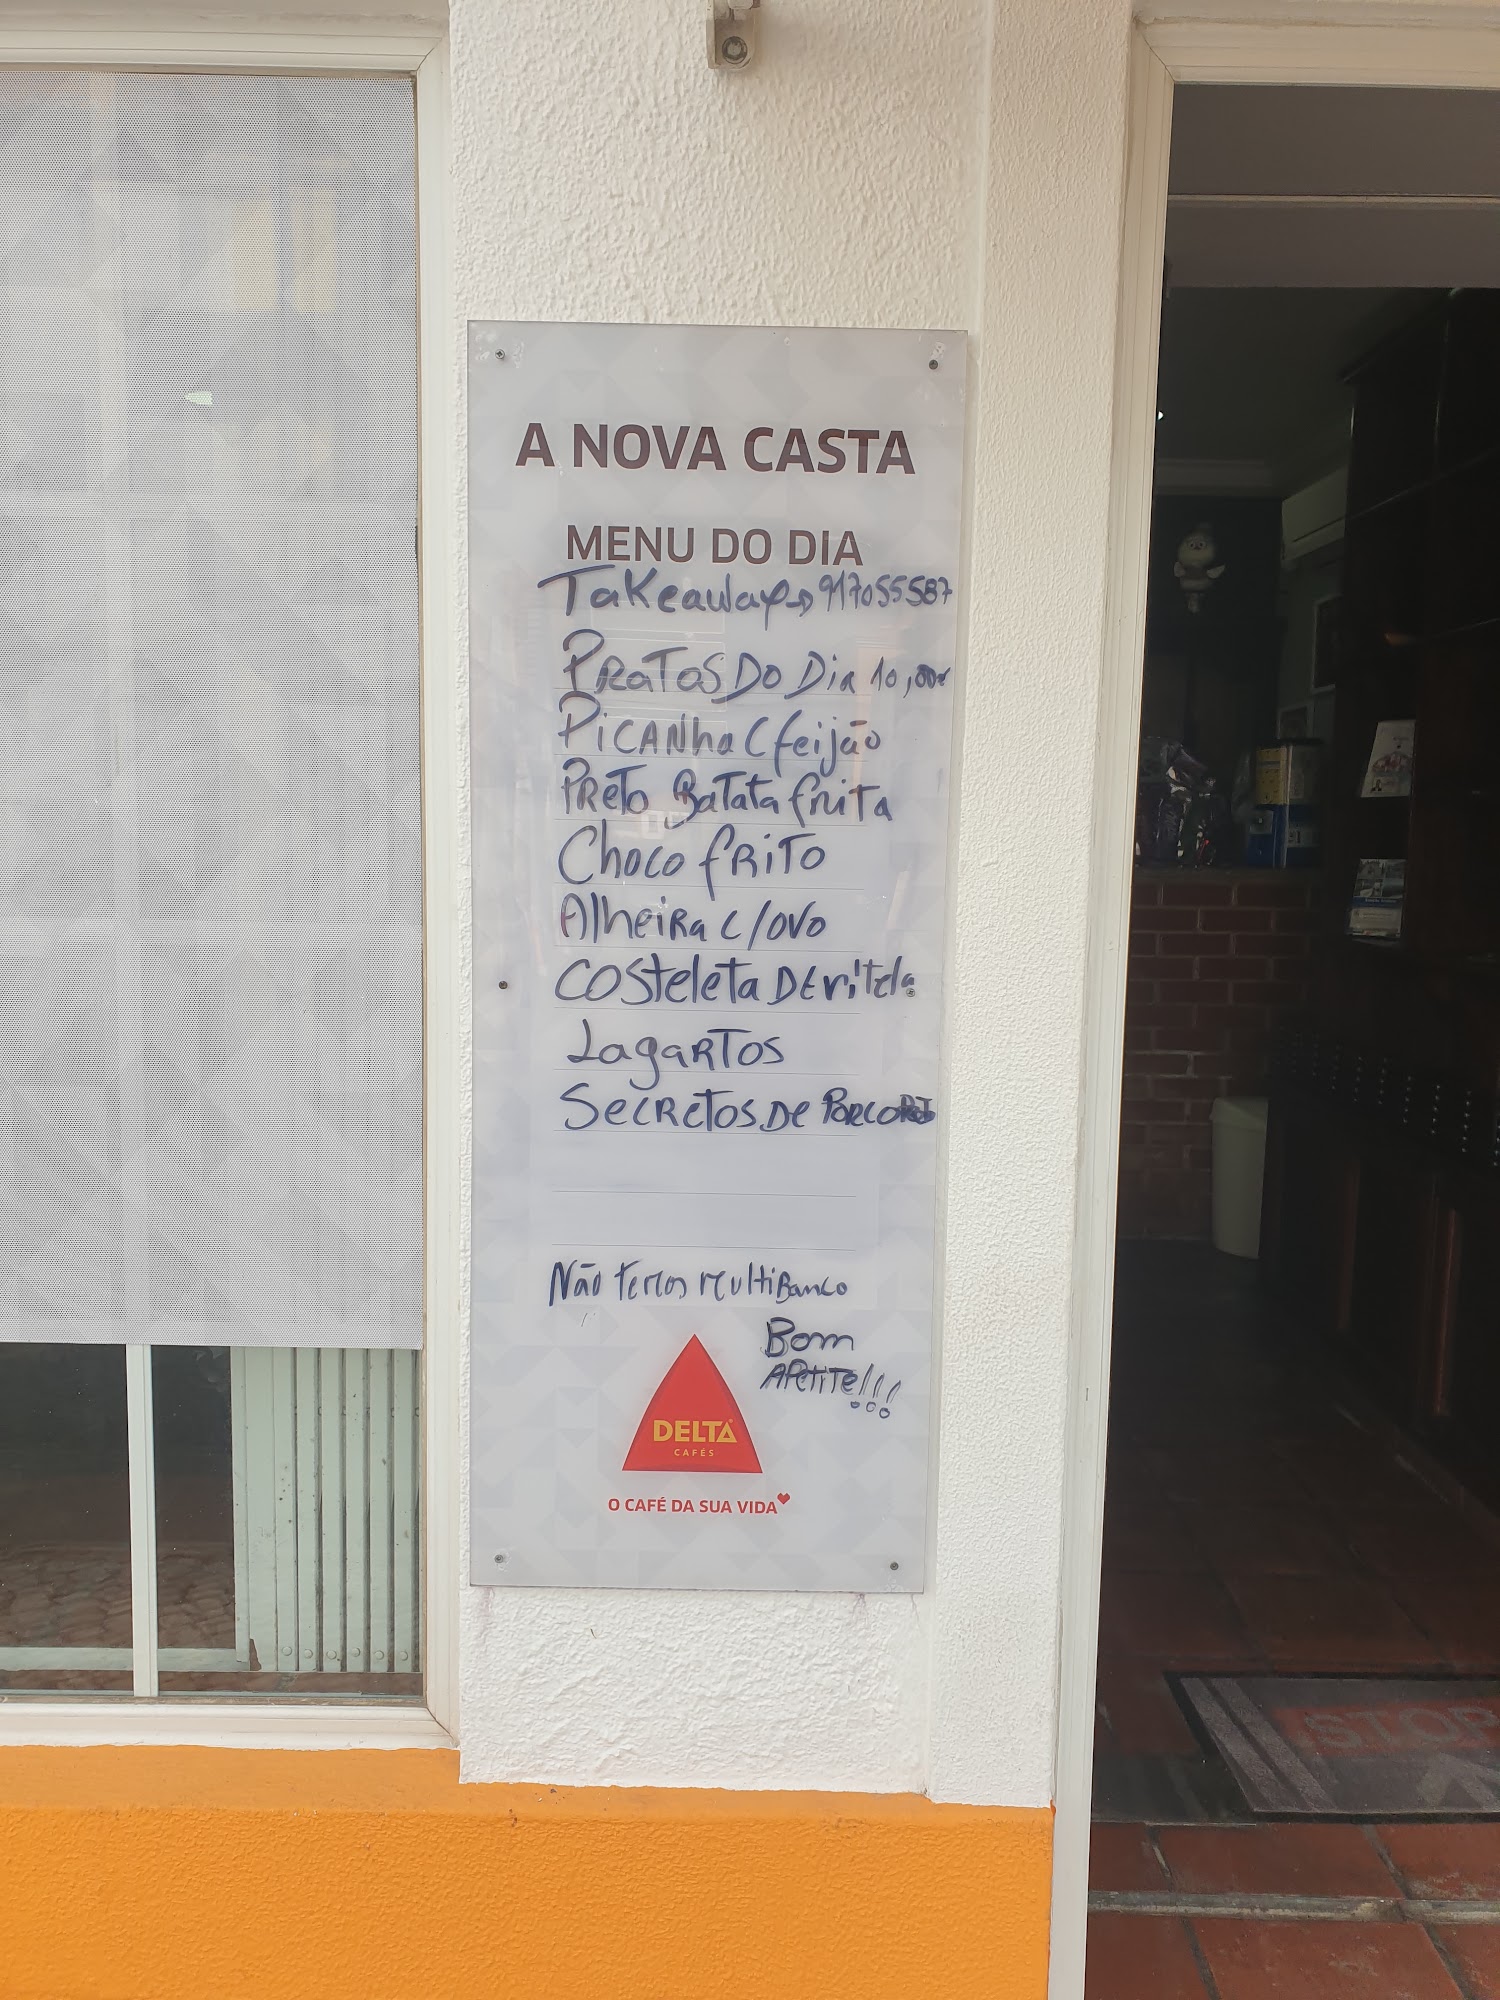 A NOVA CASTA
MENU DO DIA
Takeaway → 917055587
Pratos Do Dia 10,00€
Picanha C feijão
Preto Batata frita
Choco frito
Alheira c/ovo
Costeleta De vitela
Lagartos
Secretos De Porco
Não temos multiBanco
Bom
Apetite!!!
DELTA
CAFÉS
O CAFÉ DA SUA VIDA
STOP